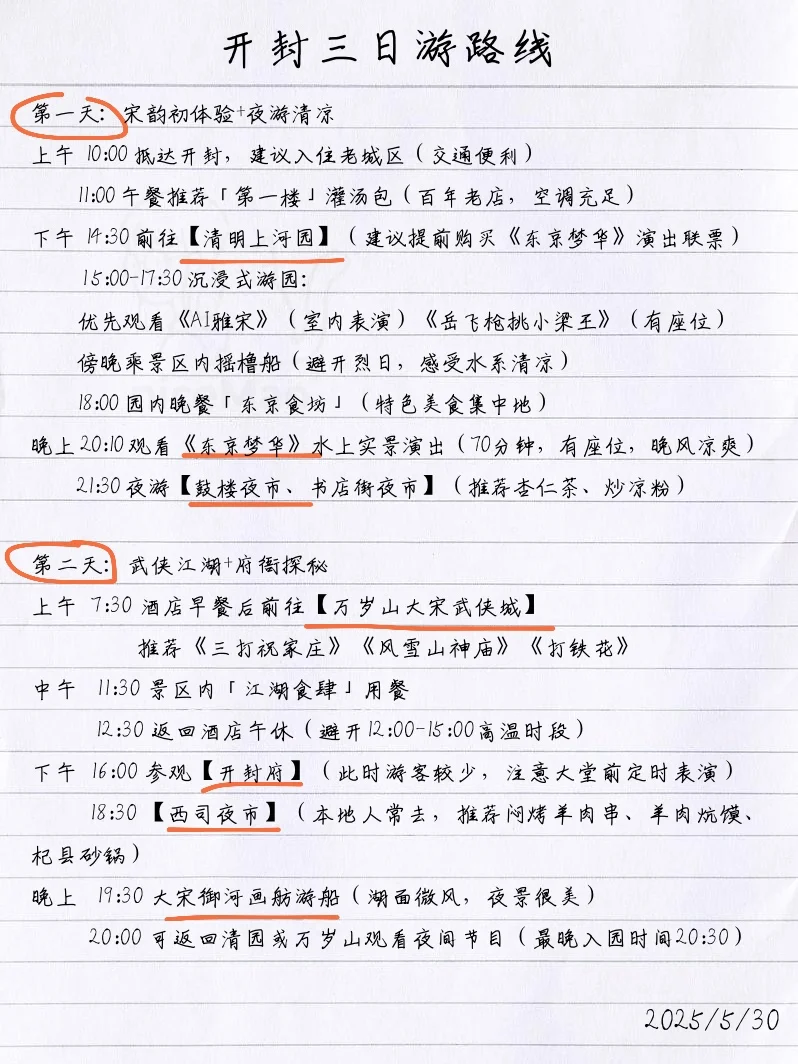 开封三日游路线
第一天：宋韵初体验+夜游清凉
上午 10:00 抵达开封，建议入住老城区（交通便利）
11:00 午餐推荐「第一楼」灌汤包（百年老店，空调充足）
下午 14:30 前往【清明上河园】（建议提前购买《东京梦华》演出联票）
15:00-17:30 沉浸式游园：
优先观看《AI雅宋》（室内表演）《岳飞枪挑小梁王》（有座位）
傍晚乘景区内摇橹船（避开烈日，感受水系清凉）
18:00 园内晚餐「东京食坊」（特色美食集中地）
晚上 20:10 观看《东京梦华》水上实景演出（70分钟，有座位，晚风凉爽）
21:30 夜游【鼓楼夜市、书店街夜市】（推荐杏仁茶、炒凉粉）
第二天：武侠江湖+府衙探秘
上午 7:30 酒店早餐后前往【万岁山大宋武侠城】
推荐《三打祝家庄》《风雪山神庙》《打铁花》
中午 11:30 景区内「江湖食肆」用餐
12:30 返回酒店午休（避开12:00-15:00高温时段）
下午 16:00 参观【开封府】（此时游客较少，注意大堂前定时表演）
18:30 【西司夜市】（本地人常去，推荐闷烤羊肉串、羊肉炕馍、
杞县砂锅）
晚上 19:30 大宋御河画舫游船（湖面微风，夜景很美）
20:00 可返回清园或万岁山观看夜间节目（最晚入园时间20:30）
2025/5/30